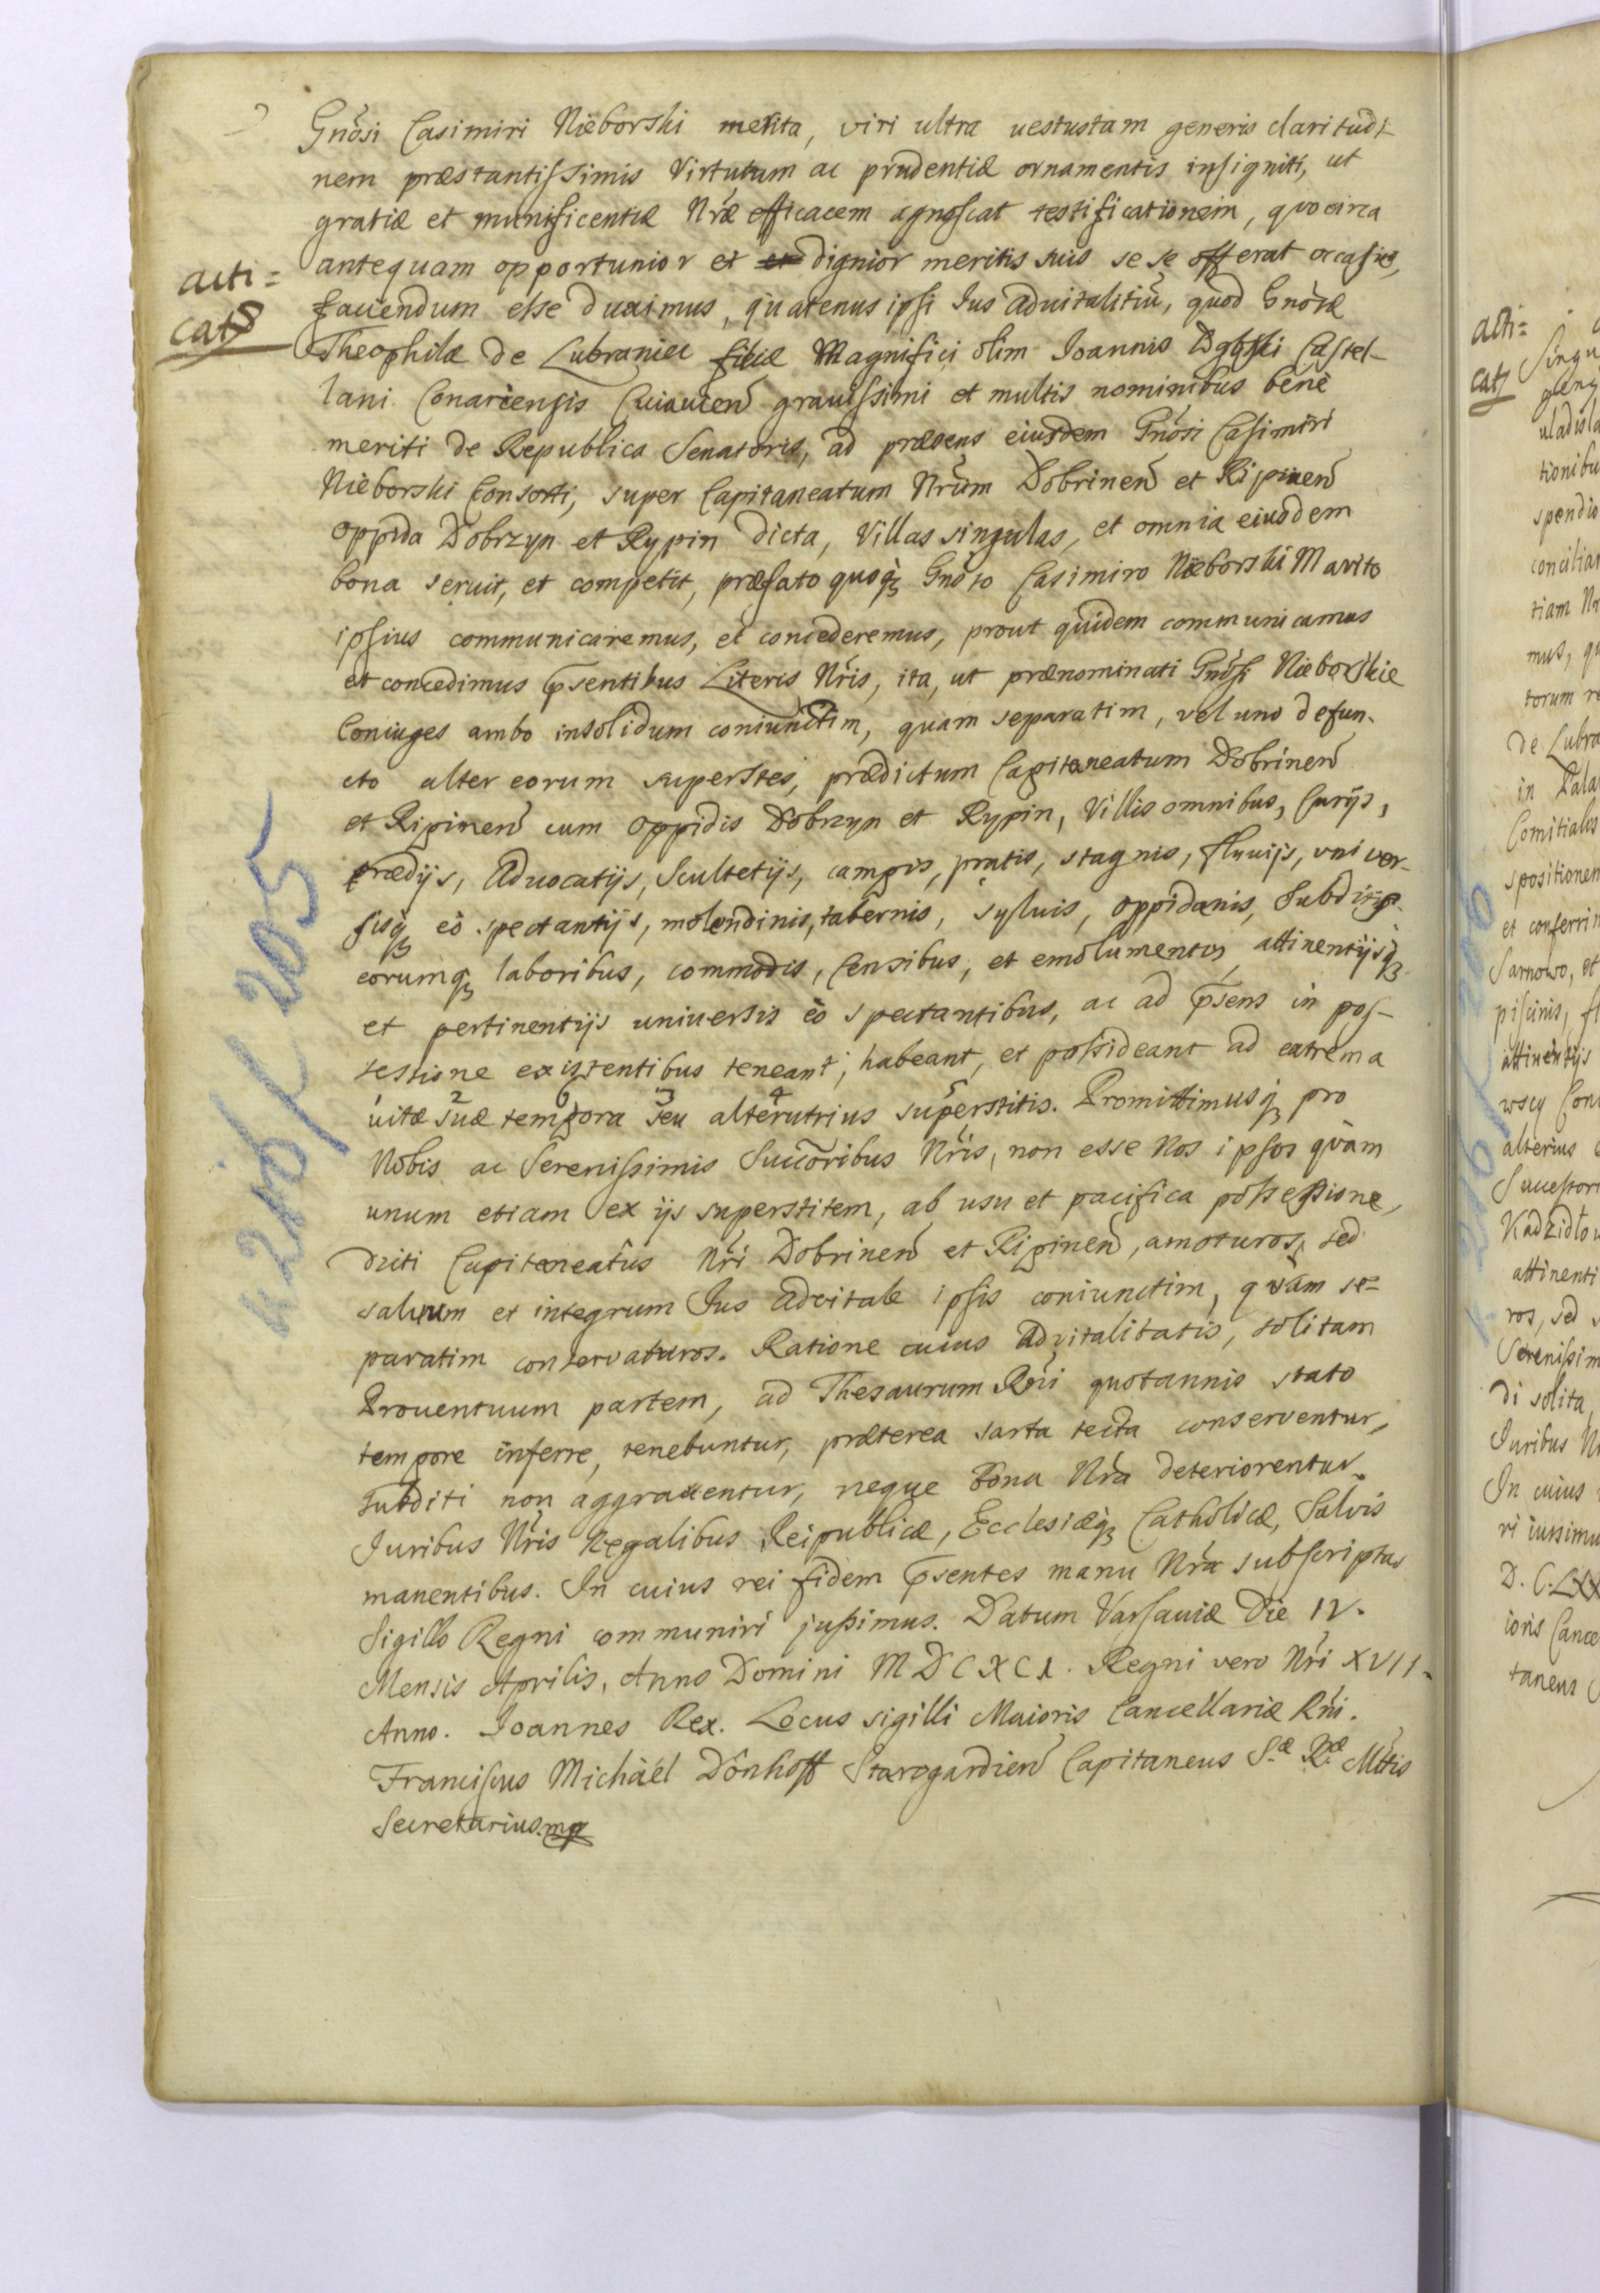 Gnosi Casimiri Nieborski merita, viri ultra uestustam generis claritudi-
nem præstantissimis Virtutum ac prudentiæ ornamentis insigniti, ut
gratiæ et munificentiæ Nræ efficacem agnoscat testificationem, quocirca
antequam opportunior et et dignior meritis suis se se offerat occasio,
acti=
cats
faciendum esse duximus, quatenus ipsi Ius aduitalitiũ, quod Gnosæ
Theophilæ de Lubraniec filiæ Magnifici olim Ioannis Dąbski Castel-
lani Conariensis Cuiauien̄ grauissimi et multis nominibus bene
meriti de Republica Senatoris, ad præsens eiusdem Gnosi Casimiri
Nieborski Consorti, super Capitaneatum Nrum Dobrinen̄ et Ripinen̄
oppida Dobrzyn et Rypin dicta, Villas singulas, et omnia eiusdem
bona seruit, et competit, præfato quoqꝫ Gnoso Casimiro Nieborski Marito
ipsius communicaremus, et concederemus, prout quidem communicamus
et concedimus p̄sentibus Literis Nris, ita, ut prænominati Gnosi Nieborskie
Coniuges ambo insolidum coniunctim, quam separatim, vel uno defun-
cto alter eorum superstes, prædictum Capitaneatum Dobrinen̄
et Ripinen̄ cum oppidis Dobrzyn et Rypin, Villis omnibus, Curijs,
prædijs, Aduocatijs, Scultetijs, campis, pratis, stagnis, fluuijs, vniver-
sisqꝫ eò spectantijs, molendinis, tabernis, syluis, oppidanis, Subditis
eorumqꝫ laboribus, commodis, Censibus, et emolumentis, attinentijsqꝫ
et pertinentijs uniuersis eò spectantibus, ac ad p̄sens in pos-
sessione existentibus teneant, habeant, et possideant ad extrema
1 2 6 3 4 5
uitæ suæ tempora seu alterutrius superstitis. Promittimusqꝫ pro
Nobis ac Serenissimis Succoribus Nris, non esse Nos ipsos quàm
unum etiam ex ijs superstitem, ab usu et pacifica possessione,
dicti Capitaneatûs Nri Dobrinen̄ et Ripinen̄, amoturos, sed
saluum et integrum Jus Advitale ipsis coniunctim, quàm se-
paratim conservaturos. Ratione cuius advitalitatis, solitam
Prouentuum partem, ad Thesaurum Rni quotannis stato
tempore inferre, tenebuntur, præterea sarta tecta conserventur,
Subditi non aggrauentur, neque Bona Nra deteriorentur.
Juribus Nris Regalibus Reipublicæ, Ecclesiæqꝫ Catholicæ, Salvis
manentibus. In cuius rei fidem p̄sentes manu Nra subscriptas
Sigillo Regni communiri jussimus. Datum Varsauiæ Die IV.
Mensis Aprilis, Anno Domini MDCXCI. Regni vero Nri XVII.
Anno. Joannes Rex. Locus sigilli Maioris Cancellariæ Rni.
Franciscus Michaël Dönhoff Starogardien̄ Capitaneus S.æ R.æ Mttis
Secretarius. mp
k 215 / 205
acti=
cats
Singu
vladisla
tionibu
spendio
concilian
tiam Nr
mus, qu
torum re
de Lubra
in Pala
Comitialis
spositionem
et conferrin
Sarnowo, et
piscinis, fl
attinentijs
alterius
Successor
attinenti
ros, sed
Serenissim
di solita,
Juribus N
In cuius
ri iussimu
ioris Cance
taneus